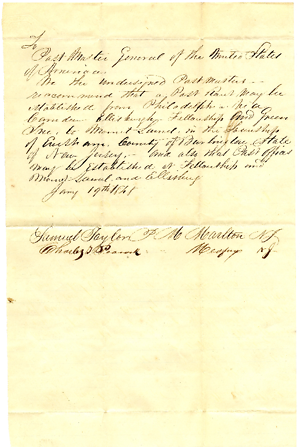 To
Post Master General of the United States
of America
We the undersigned Post Masters
recommend that a Post Rout may be
established from Philadelphia via
Camden Ellisburgh Fellowship and Green
Tree, to Mount Laurel, in the Township
of Evesham County of Burlington State
of New Jersey, and also that Post Offices
may be established at Fellowship and
Mount Laurel and Ellisburg
Jany 19th
Samuel Taylor P M Marlton NJ
Charles NJ